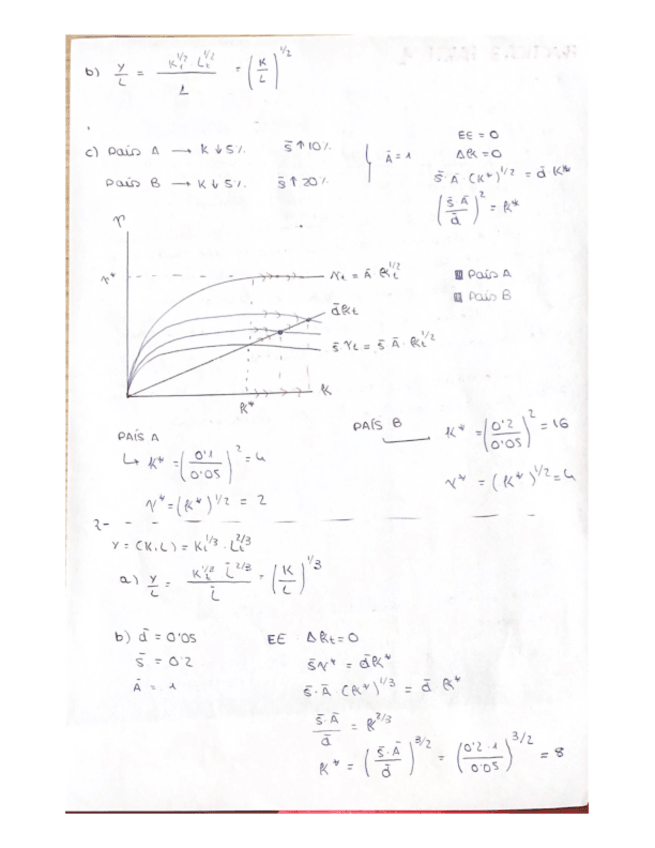 b) Y/L = K_t^{1/2} L_t^{1/2} / L = (K/L)^{1/2}
c) País A → K ↓ 5%   s̄ ↑ 10%   Ā = 1
País B → K ↓ 5%   s̄ ↑ 20%
EE = 0
Δk = 0
s̄ · Ā · (K*)^{1/2} = d̄ K*
(s̄ · Ā / d̄)^2 = k*
Y
Y*
Y_t = Ā · k_t^{1/2}
País A
País B
d̄k_t
s̄ · Y_t = s̄ · Ā · k_t^{1/2}
K
k*
PAÍS A
↳ K* = (0'1 / 0'05)^2 = 4
Y* = (k*)^{1/2} = 2
PAÍS B
K* = (0'2 / 0'05)^2 = 16
Y* = (K*)^{1/2} = 4
2-
Y = (K, L) = K_t^{1/3} · L_t^{2/3}
a) Y/L = K_t^{1/3} L̄^{2/3} / L̄ = (K/L)^{1/3}
b) d̄ = 0'05
s̄ = 0'2
Ā = 1
EE : Δk_t = 0
s̄Y* = d̄k*
s̄ · Ā · (k*)^{1/3} = d̄ · k*
s̄ · Ā / d̄ = k^{2/3}
k* = (s̄ · Ā / d̄)^{3/2} = (0'2 · 1 / 0'05)^{3/2} = 8